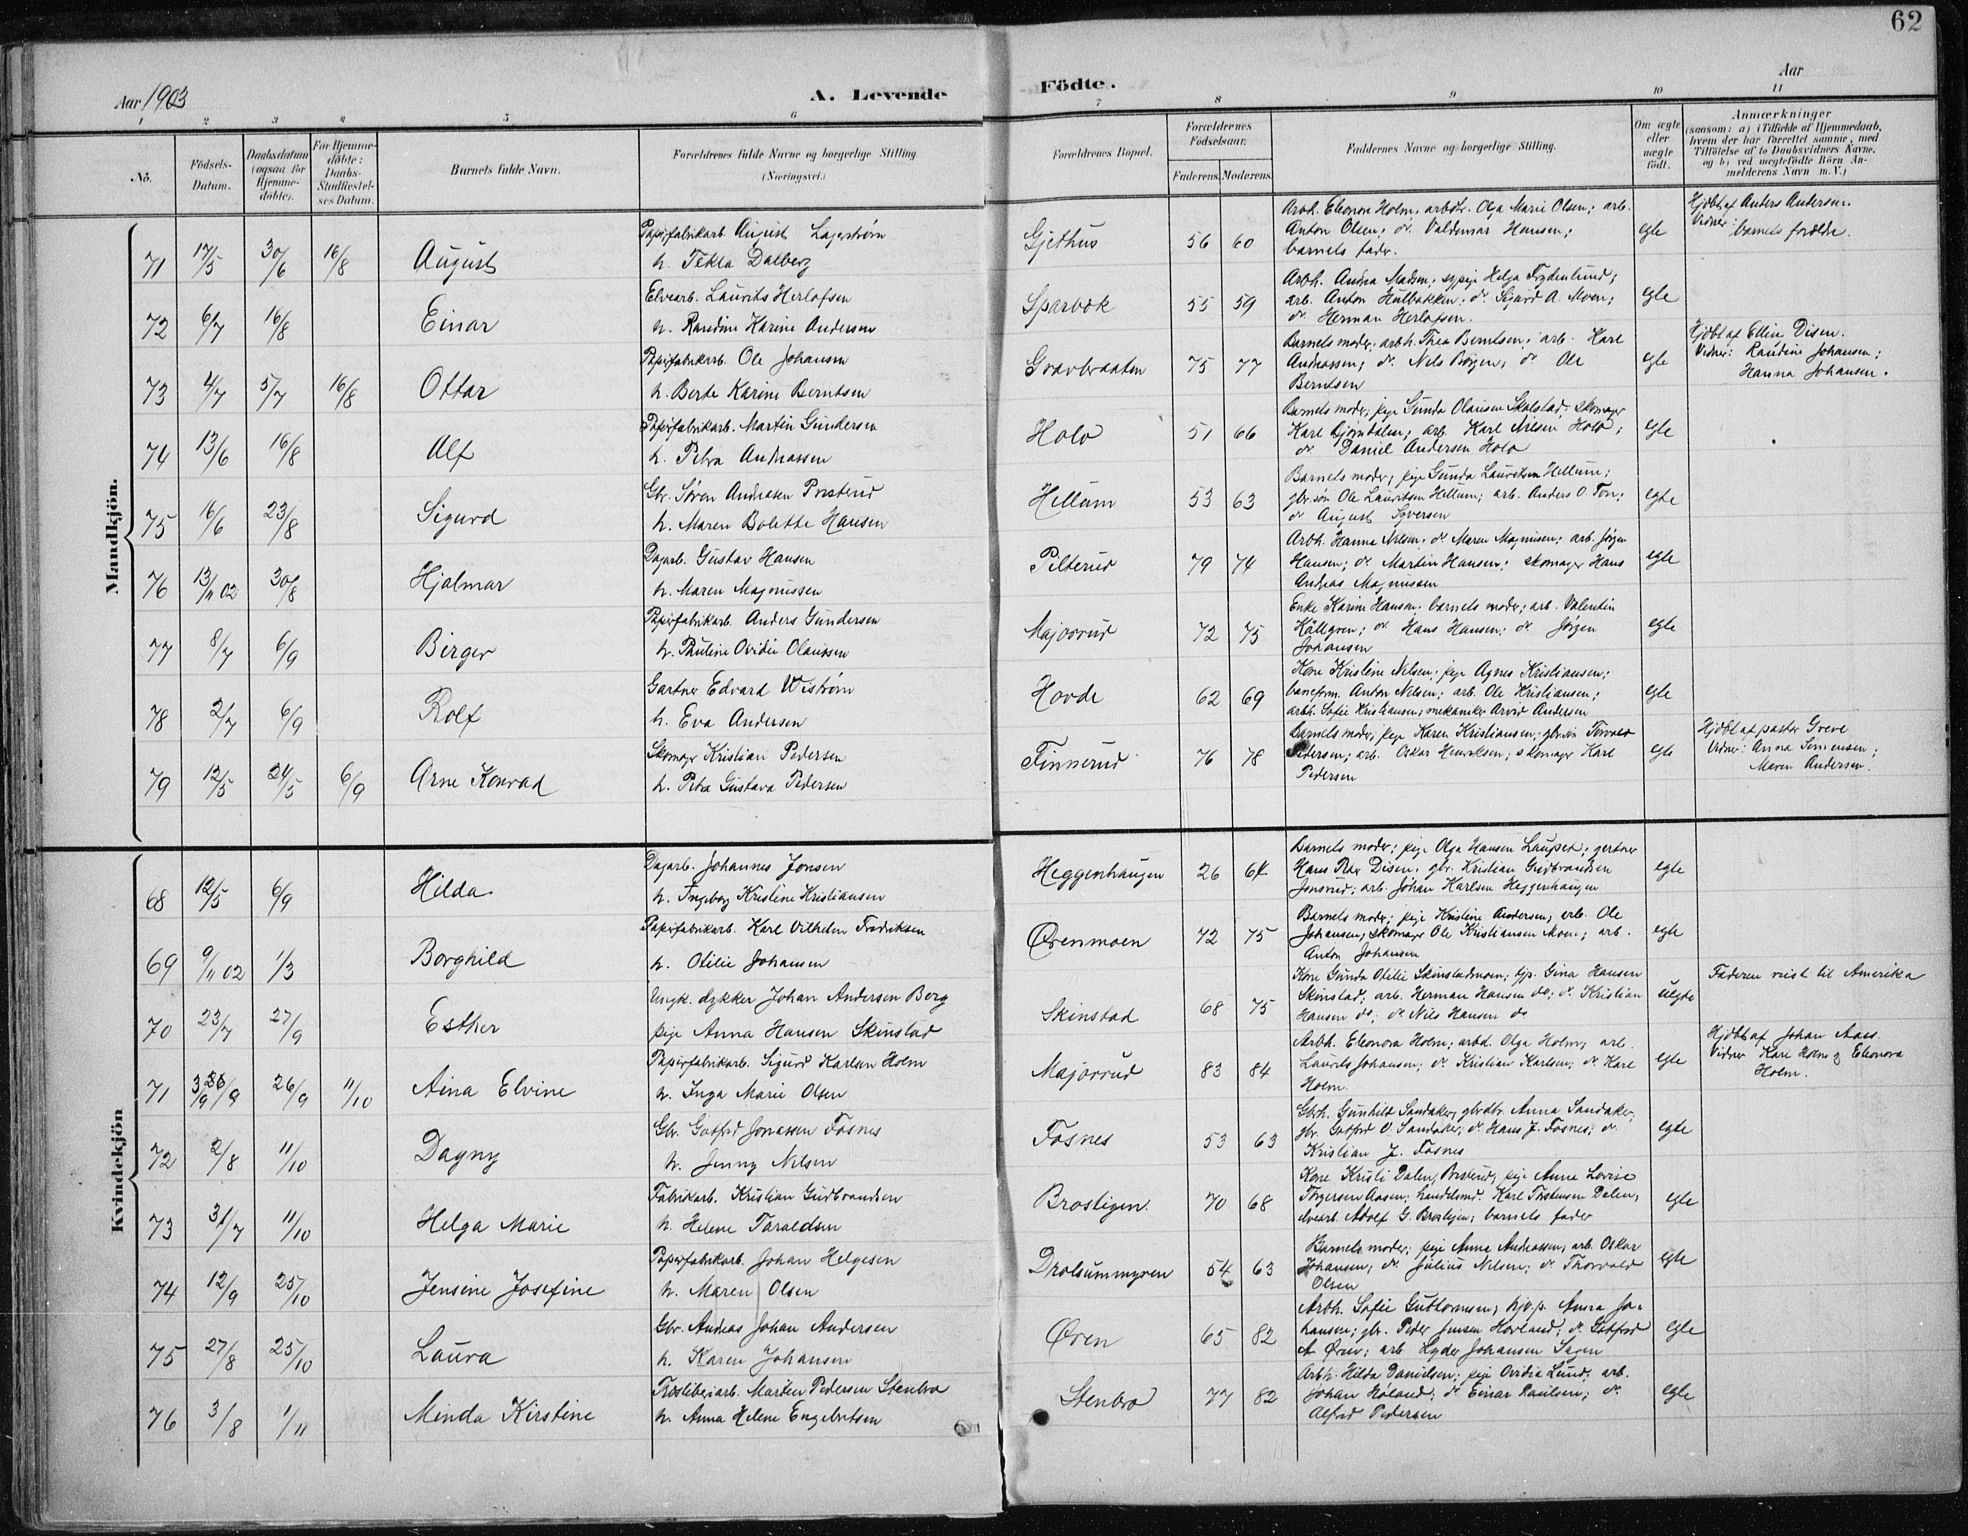 62
Aar 1903
A. Levende
Födte.
Aar
1 2 3 4 5 6 7 8 9 10 11
No.
Födsels-Datum.
Daabsdatum (ogsaa for Hjemme-döbte).
For Hjemme-döbte: Daabs-Stadfæstelses Datum.
Barnets fulde Navn.
Forældrenes fulde Navne og borgerlige Stilling.
(Næringsvei.)
Forældrenes Bopæl.
Forældrenes Födselsaar.
Faderens. Moderens.
Faddernes Navne og borgerlige Stilling.
Om ægte eller uægte födt.
Anmærkninger
(saasom: a) i Tilfælde af Hjemmedaab, hvem der har forrettet samme, med Tilföielse af to Daabsvidners Navne, og b) ved uægtefödte Börn Anmelderens Navn m. V.)
Mandkjön.
71 17/5 30/6 16/8 August
Papirfabrikarb. August Lagerstrøm
h. Tekla Dalberg
Gjethus 56 60
Arbh. Eleonore Holm, arbdtr. Olga Marie Olsen; arb.
Anton Olsen; do Valdemar Hansen;
barnets fader.
egte
Hjdbt af Anders Andersen.
Vidner: barnets forældre.
72 6/7 16/8 Einar
Elvearb. Laurits Herlofsen
h. Randine Karine Andersen
Sparbok 55 59
Arbh. Andrea Madsen; sypige Helga Frydenlund;
arb. Anton Hulbakken; do Sigurd A. Moen;
do Herman Herlofsen.
egte
73 4/7 5/7 16/8 Ottar
Papirfabrikarb. Ole Johansen
h. Berte Karine Berntsen
Gravbraaten 75 77
Barnets moder; arbh. Thea Berntsen; arb. Karl
Andreassen; do Nils Borgen; do Ole
Berntsen
egte
Hjdbt af Elline Disen.
Vidner: Randine Johansen;
Hanna Johansen.
74 13/6 16/8 Alf
Papirfabrikarb. Martin Gundersen
h. Petra Andreassen
Holo 51 66
Barnets moder; pige Gunda Olausen Skolstad; skomager
Karl Bjørndalen; arb. Karl Nilsen Holo;
do Daniel Andersen Holo
egte
75 16/6 23/8 Sigurd
Gbr. Søren Andreasen Prosterud
h. Maren Bolette Hansen
Hellum 53 63
Barnets moder; pige Gunda Lauritsen Hellum;
gbr.søn Ole Lauritsen Hellum; arb. Anders O. Ton;
do August Syversen
egte
76 13/11 02 30/8 Hjalmar
Dagarb. Gustav Hansen
h. Maren Magnussen
Pilterud 79 74
Arbh. Hanna Nilsen; do Maren Magnussen; arb. Jørgen
Hansen; do Martin Hansen; skomager Hans
Andreas Magnussen
egte
77 8/7 6/9 Birger
Papirfabrikarb. Anders Gundersen
h. Pauline Ovidie Olaussen
Majorrud 72 75
Enke Karine Hansen; barnets moder; arb. Valentin
Källgren; do Hans Hansen; do Jørgen
Johansen
egte
78 2/7 6/9 Rolf
Gartner Edvard Wistrøm
h. Eva Andersen
Hovde 62 69
Kone Kristine Nilsen; pige Agnes Kristiansen;
baneform. Anton Nilsen; arb. Ole Kristiansen;
arbh. Sofie Kristiansen; mekaniker Arvid Andersen
egte
79 12/5 24/5 6/9 Arne Konrad
Skomager Kristian Pedersen
h. Petra Gustava Pedersen
Finnerud 76 78
Barnets moder; pige Karen Kristiansen; gbr.søn Torvald
Pedersen; arb. Oskar Henriksen; skomager Karl
Pedersen
egte
Hjdbt af pastor Greve
Vidner: Anna Simensen;
Maren Andersen.
Kvindekjön
68 12/5 6/9 Hilda
Dagarb. Johannes Jonsen
h. Ingeborg Kristine Kristiansen
Heggenhaugen 26 64
Barnets moder; pige Olga Hansen Laupset; gartner
Hans Disen; gbr. Kristian Gudbrandsen
Jonsrud; arb. Johan Karlsen Heggenhaugen
egte
69 9/11 02 1/3 Borghild
Papirfabrikarb. Karl Vilhelm Fredriksen
h. Otilie Johansen
Ørenmoen 72 75
Barnets moder; pige Kristine Andersen; arb. Ole
Johansen; skomager Ole Kristiansen Moen; arb.
Anton Johansen
egte
70 23/7 27/9 Esther
Ungk. dykker Johan Andersen Berg
pige Anna Hansen Skinstad
Skinstad 68 75
Kone Gunda Otilie Skinstadmoen; tjp. Gina Hansen
Skinstad; arb. Herman Hansen do; do Kristian
Hansen do; do Nils Hansen do
uegte
Faderen reist til Amerika
71 3/9 26/9 11/10 Aina Elvine
Papirfabrikarb. Sigurd Karlsen Holm
h. Inga Marie Olsen
Majorrud 83 84
Arbh. Eleonora Holm; arbd. Olga Holm; arb.
Laurits Johansen; do Kristian Karlsen; do Karl
Holm.
egte
Hjdbt af Johan Aaes.
Vidner Karl Holm og Eleonora
Holm.
72 2/8 11/10 Dagny
Gbr. Gotfred Jonassen Fosnes
h. Jenny Nilsen
Fosnes 53 63
Gbrh. Gunhild Sandaker; gbrdtr. Anna Sandaker;
gbr. Gotfred O. Sandaker; do Hans J. Fosnes; do
Kristian J. Fosnes
egte
73 31/7 11/10 Helga Marie
Fabrikarb. Kristian Gudbrandsen
h. Helene Taraldsen
Brostigen. 70 68
Kone Kristi Dalen, Prosterud; pige Anna Lovise
Torgersen Aasen; handelsmd. Karl Torstensen Dalen;
elvearb. Adolf G. Brostigen; barnets fader
egte
74 12/9 25/10 Jensine Josefine
Papirfabrikarb. Johan Helgesen
h. Maren Olsen
Drolsummyren 54 63
Barnets moder; pige Anna Andreassen; arb. Oskar
Johansen; do Julius Nilsen; do Thorvald
Olsen
egte
75 27/8 25/10 Laura
Gbr. Andreas Johan Andersen
h. Karen Johansen
Øren 65 82
Arbh. Sofie Guttormsen; hjp.p. Anna Jo-
hansen; gbr. Peder Jensen Hovland; do Gotfred
A. Øren; arb. Hyder Johansen Sagen
egte
76 3/8 1/11 Minda Kirstine
Træsliberiarb. Martin Pedersen Stenbro
h. Anna Helene Engebretsen
Stenbro 77 82
Arbh. Hilda Danielsen; pige Ovidia Lund; arb.
Johan Høland; do Einar Paulsen; do
Alfred Pedersen
egte